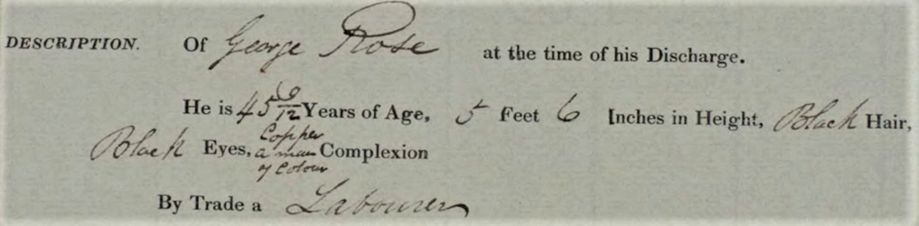 DESCRIPTION. Of George Rose at the time of his Discharge.
He is 45 6/12 Years of Age, 5 Feet 6 Inches in Height, Black Hair,
Black Eyes, Copper a man of Colour Complexion
By Trade a Labourer